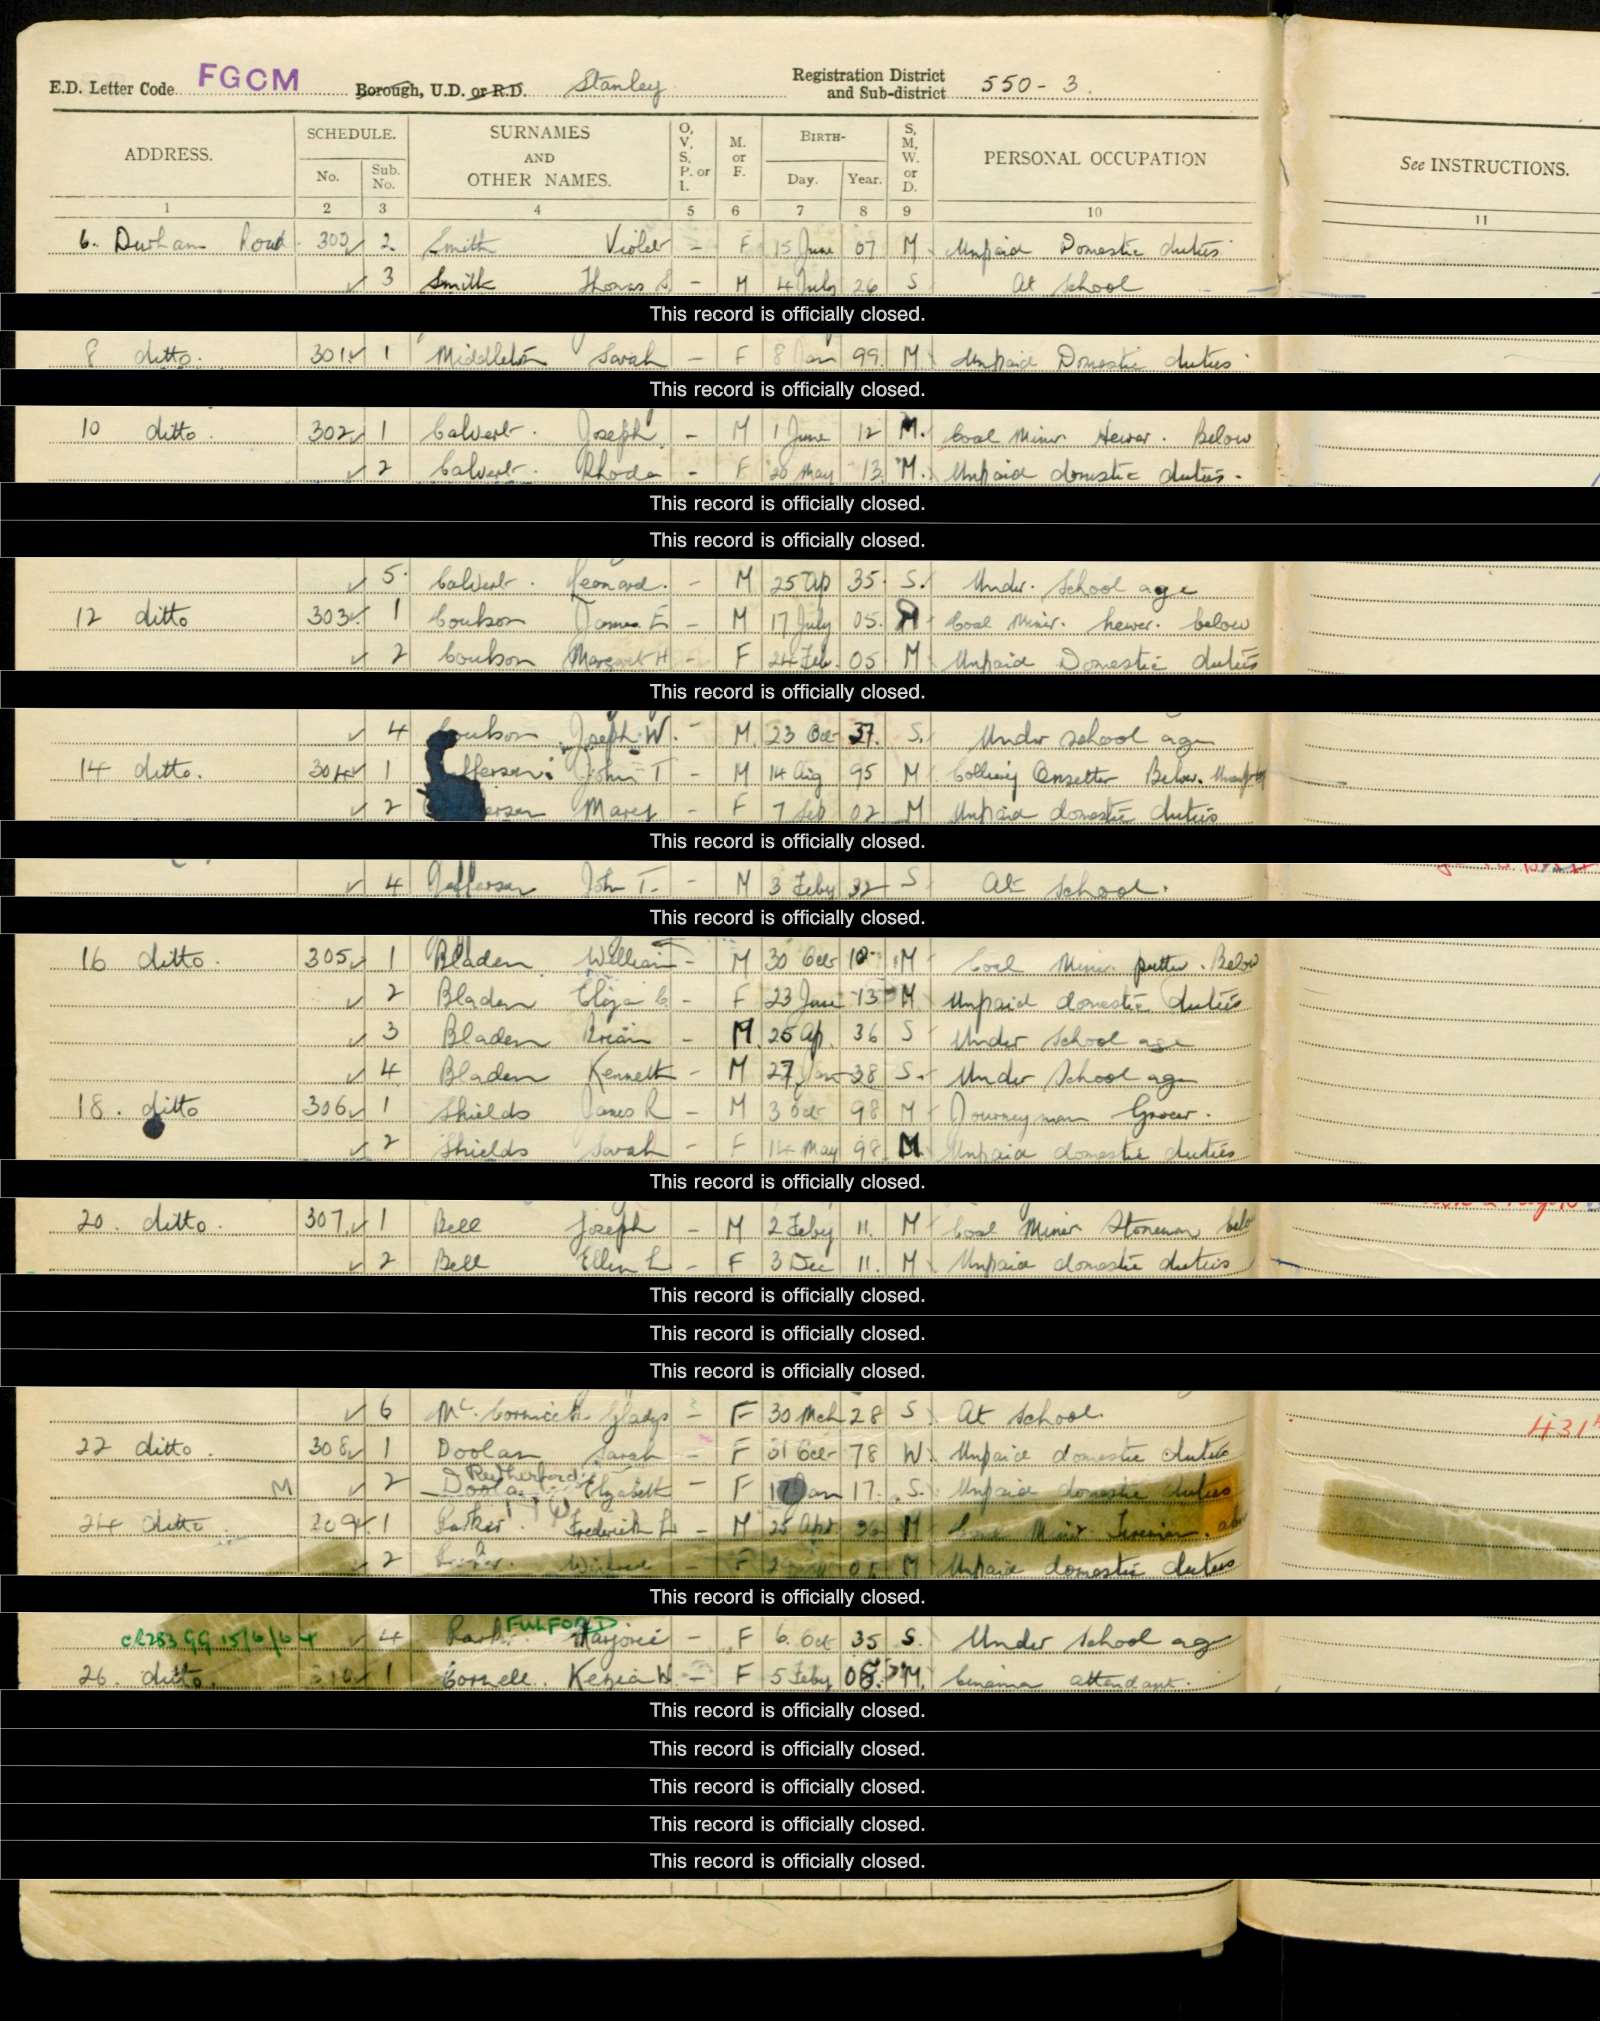 E.D. Letter Code FGCM Borough, U.D. or R.D. Stanley Registration District and Sub-district 550-3.
ADDRESS. SCHEDULE. No. Sub. No. SURNAMES AND OTHER NAMES. O, V, S, P. or I. M. or F. BIRTH- Day. Year. S, M, W. or D. PERSONAL OCCUPATION See INSTRUCTIONS.
1 2 3 4 5 6 7 8 9 10 11
6. Durham Road 2 Smith Violet - F 15 June 07 M Unpaid Domestic duties
3 Smith Thomas S - M 4 July 26 S At School
This record is officially closed.
8 ditto. 301 1 Middleton Sarah - F 8 Jan 99 M Unpaid Domestic duties
This record is officially closed.
10 ditto. 302 1 Calvert. Joseph - M 1 June 12 M. Coal Miner Hewer. Below
2 Calvert. Rhoda - F 20 May 13 M. Unpaid domestic duties.
This record is officially closed.
This record is officially closed.
5. Calvert. Leonard. - M 25 Ap 35. S. Under. School age
12 ditto 303 1 Coulson James E - M 17 July 05. M Coal Miner. hewer. below
2 Coulson Margaret H - F 24 Feb. 05 M Unpaid Domestic duties
This record is officially closed.
4 Coulson Joseph W. - M. 23 Oct 37. S. Under school age
14 ditto. 304 1 John T - M 14 Aug 95 M Colliery Onsetter Below.
2 Mary - F 7 Sep 02 M Unpaid domestic duties
This record is officially closed.
4 John T. - M 3 Feby 32 S At School.
This record is officially closed.
16 ditto. 305 1 Bladen William - M 30 Oct 10 M Coal Miner putter. Below
2 Bladen Eliza C - F 23 June 13 M Unpaid domestic duties
3 Bladen Brian - M. 25 Ap. 36 S Under School age
4 Bladen Kenneth - M 27 Jan 38 S. Under School age
18. ditto 306 1 Shields James R - M 3 Oct 98 M Journeyman Grocer.
2 Shields Sarah - F 14 May 98 M Unpaid domestic duties
This record is officially closed.
20. ditto. 307 1 Bell Joseph - M 2 Feby 11. M Coal Miner Stoneman
2 Bell Ellen L - F 3 Dec 11. M Unpaid domestic duties
This record is officially closed.
This record is officially closed.
This record is officially closed.
6 Mc. Cormick Gladys - F 30 Mch 28 S At School.
22 ditto. 308 1 Doolan Sarah - F 31 Oct 78 W. Unpaid domestic duties
Rutherford
M 2 Elizabeth - F 17. S. Unpaid domestic duties
24 ditto 309 1 Parker. Frederick - M M Coal Miner.
2 - F M Unpaid domestic duties
This record is officially closed.
FULFORD
4 Marjorie - F 6. Oct 35 S. Under School age
26. ditto. 310 1 Cornell. Kezia W. - F 5 Feby 08. M. Cinema attendant.
This record is officially closed.
This record is officially closed.
This record is officially closed.
This record is officially closed.
This record is officially closed.